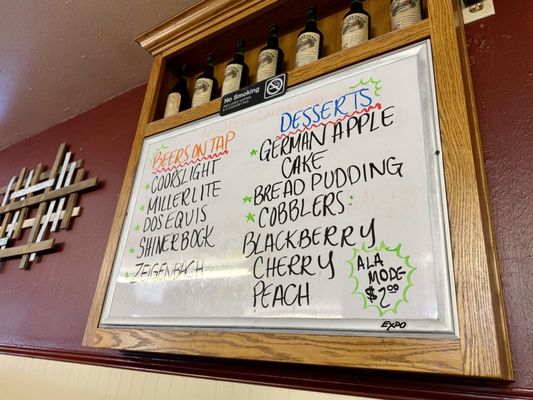 No Smoking
BEERS ON TAP
COORSLIGHT
MILLERLITE
DOS EQUIS
SHINERBOCK
ZEIGENBACH
DESSERTS
GERMAN APPLE
CAKE
BREAD PUDDING
COBBLERS:
BLACKBERRY
CHERRY
PEACH
ALA
MODE
$2.00
EXPO